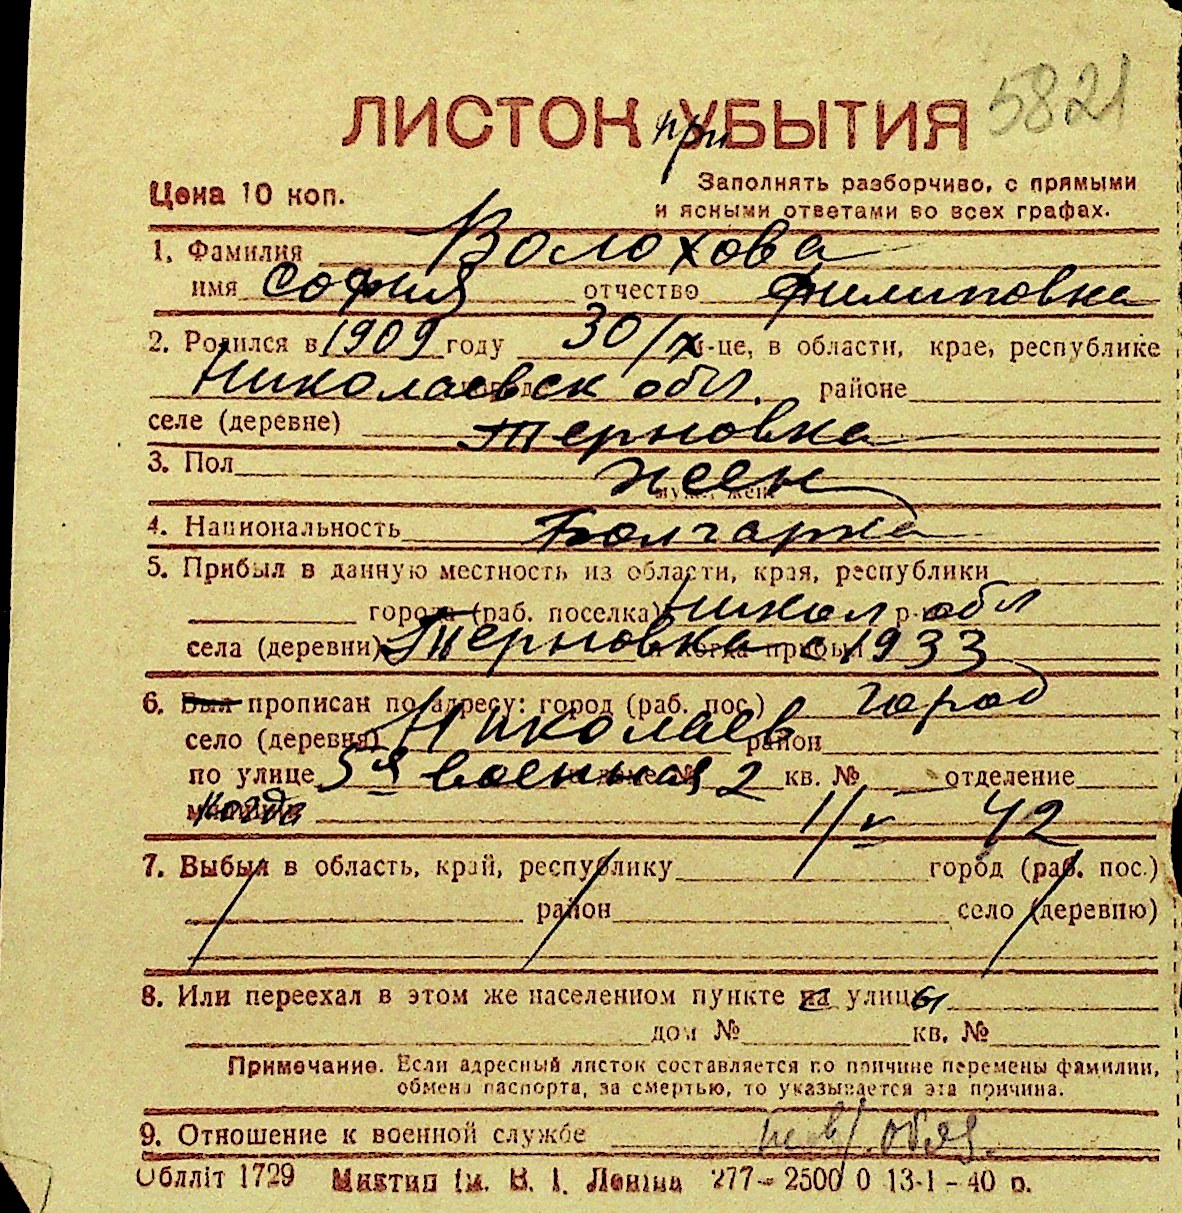 5821
ЛИСТОК при УБЫТИЯ
Цена 10 коп.
Заполнять разборчиво, с прямыми
и ясными ответами во всех графах.
1. Фамилия Волохова
имя София отчество Филиповна
2. Родился в 1909 году 30/ м-це, в области, крае, республике
Николаевск обл. районе
селе (деревне) Терновка
3. Пол жен
4. Национальность Болгарка
5. Прибыл в данную местность из области, края, республики
города (раб. поселка) Никол р-на обл
села (деревни) Терновка с 1933
6. Был прописан по адресу: город (раб. пос.) город
село (деревня) Николаев район
по улице 5я военная 2 кв. № отделение
когда 1/V 42
7. Выбыл в область, край, республику город (раб. пос.)
район село (деревню)
8. Или переехал в этом же населенном пункте с улицы
дом № кв. №
Примечание. Если адресный листок составляется по причине перемены фамилии,
обмена паспорта, за смертью, то указывается эта причина.
9. Отношение к военной службе нев/обяз.
Облліт 1729 Миктип ім. В. І. Леніна 277-2500 0 13-1-40 р.